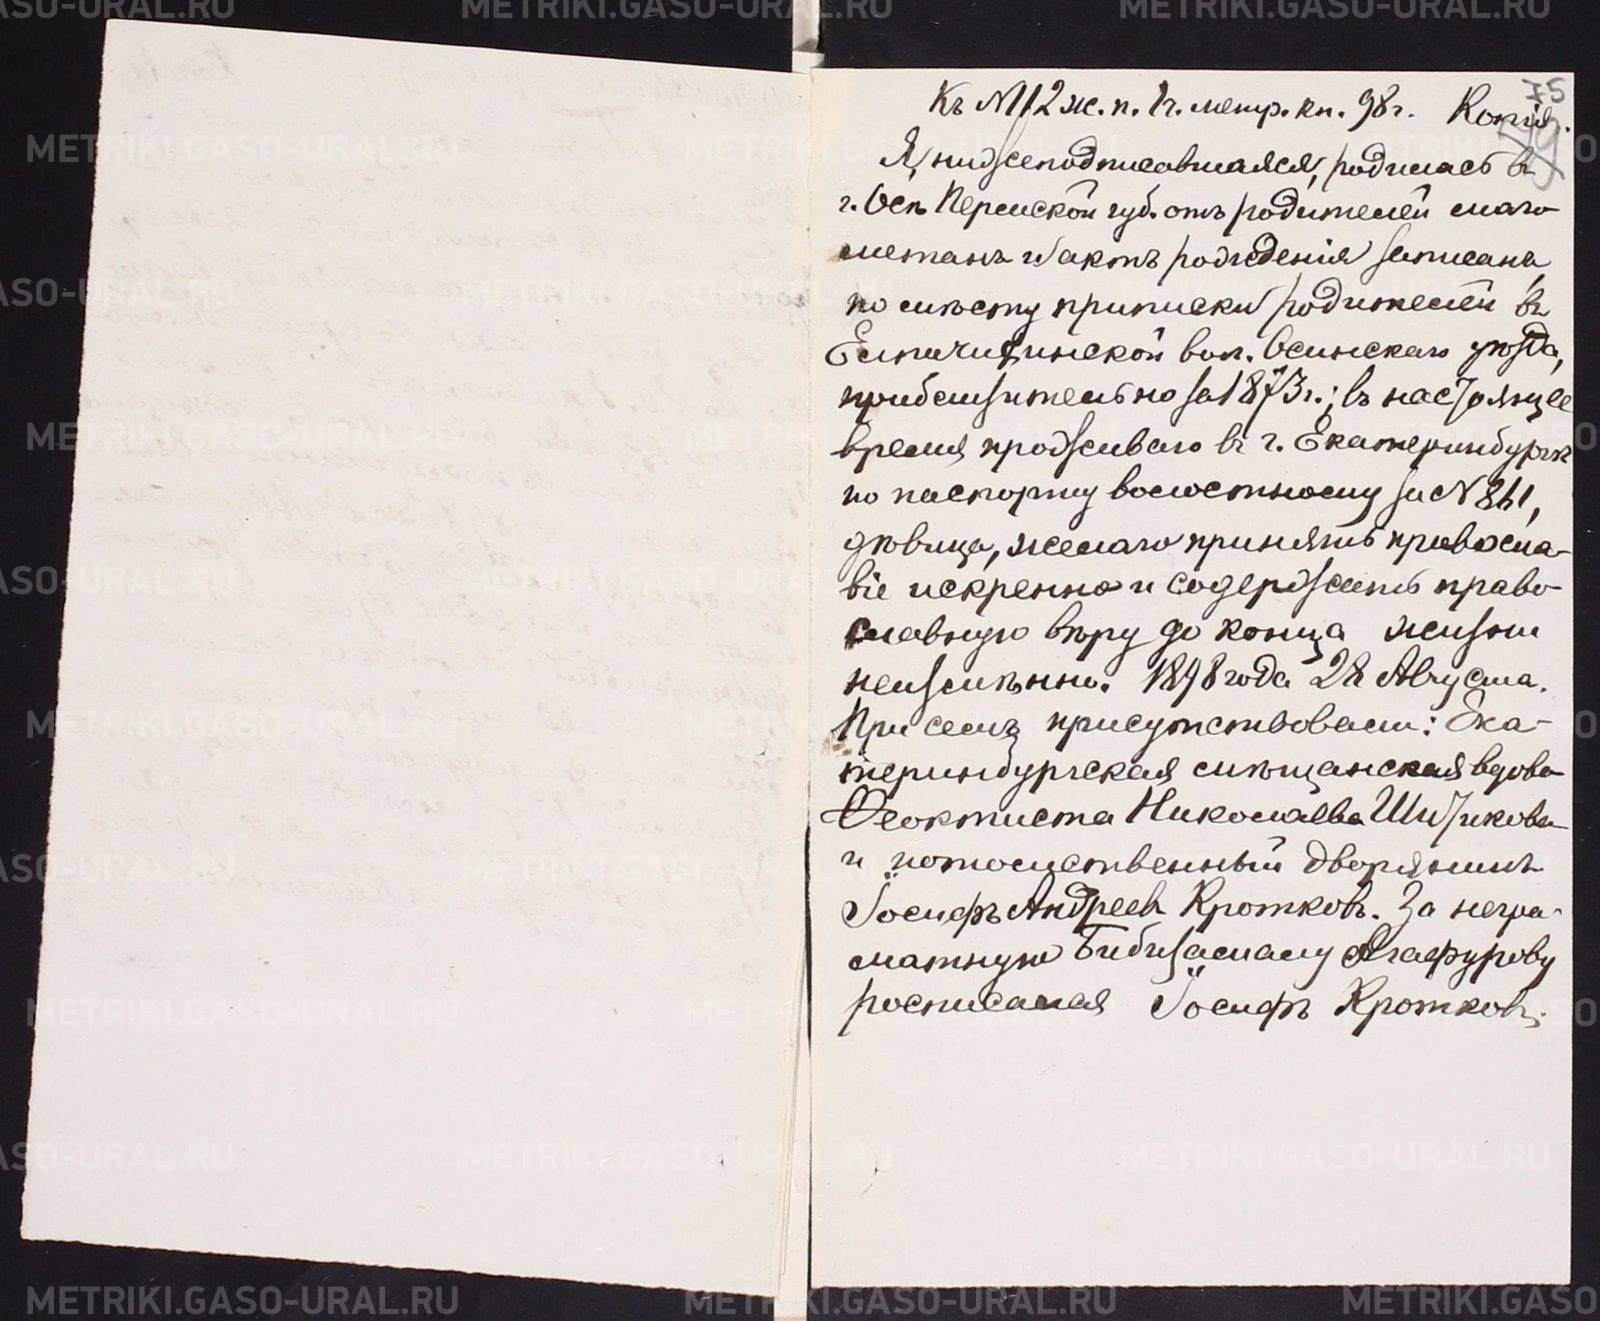 75
Къ №112 ж. п. 1ч. метр. кн. 98г. Копія.
Я, нижеподписавшаяся, родилась въ
г. Осѣ Пермской губ. отъ родителей маго-
метанъ и актъ рожденія записанъ
по мѣсту приписки родителей въ
вол. Осинскаго уѣзда,
приблизительно за 1873 г.; въ настоящее
время проживаю въ г. Екатеринбургѣ
по паспорту волостному за № 861,
дѣвица, желаю принять правосла-
віе искренно и содержать право-
славную вѣру до конца жизни
неизмѣнно. 1898 года 28 Августа.
При семъ присутствовали: Ека-
теринбургская мѣщанская вдова
Ѳеоктиста Николаева Шитикова
и потомственный дворянинъ
Іосифъ Андреевъ Кротковъ. За негра-
мотную Бибизамалу Агафурову
росписался Іосифъ Кротковъ.
METRIKI.GASO-URAL.RU